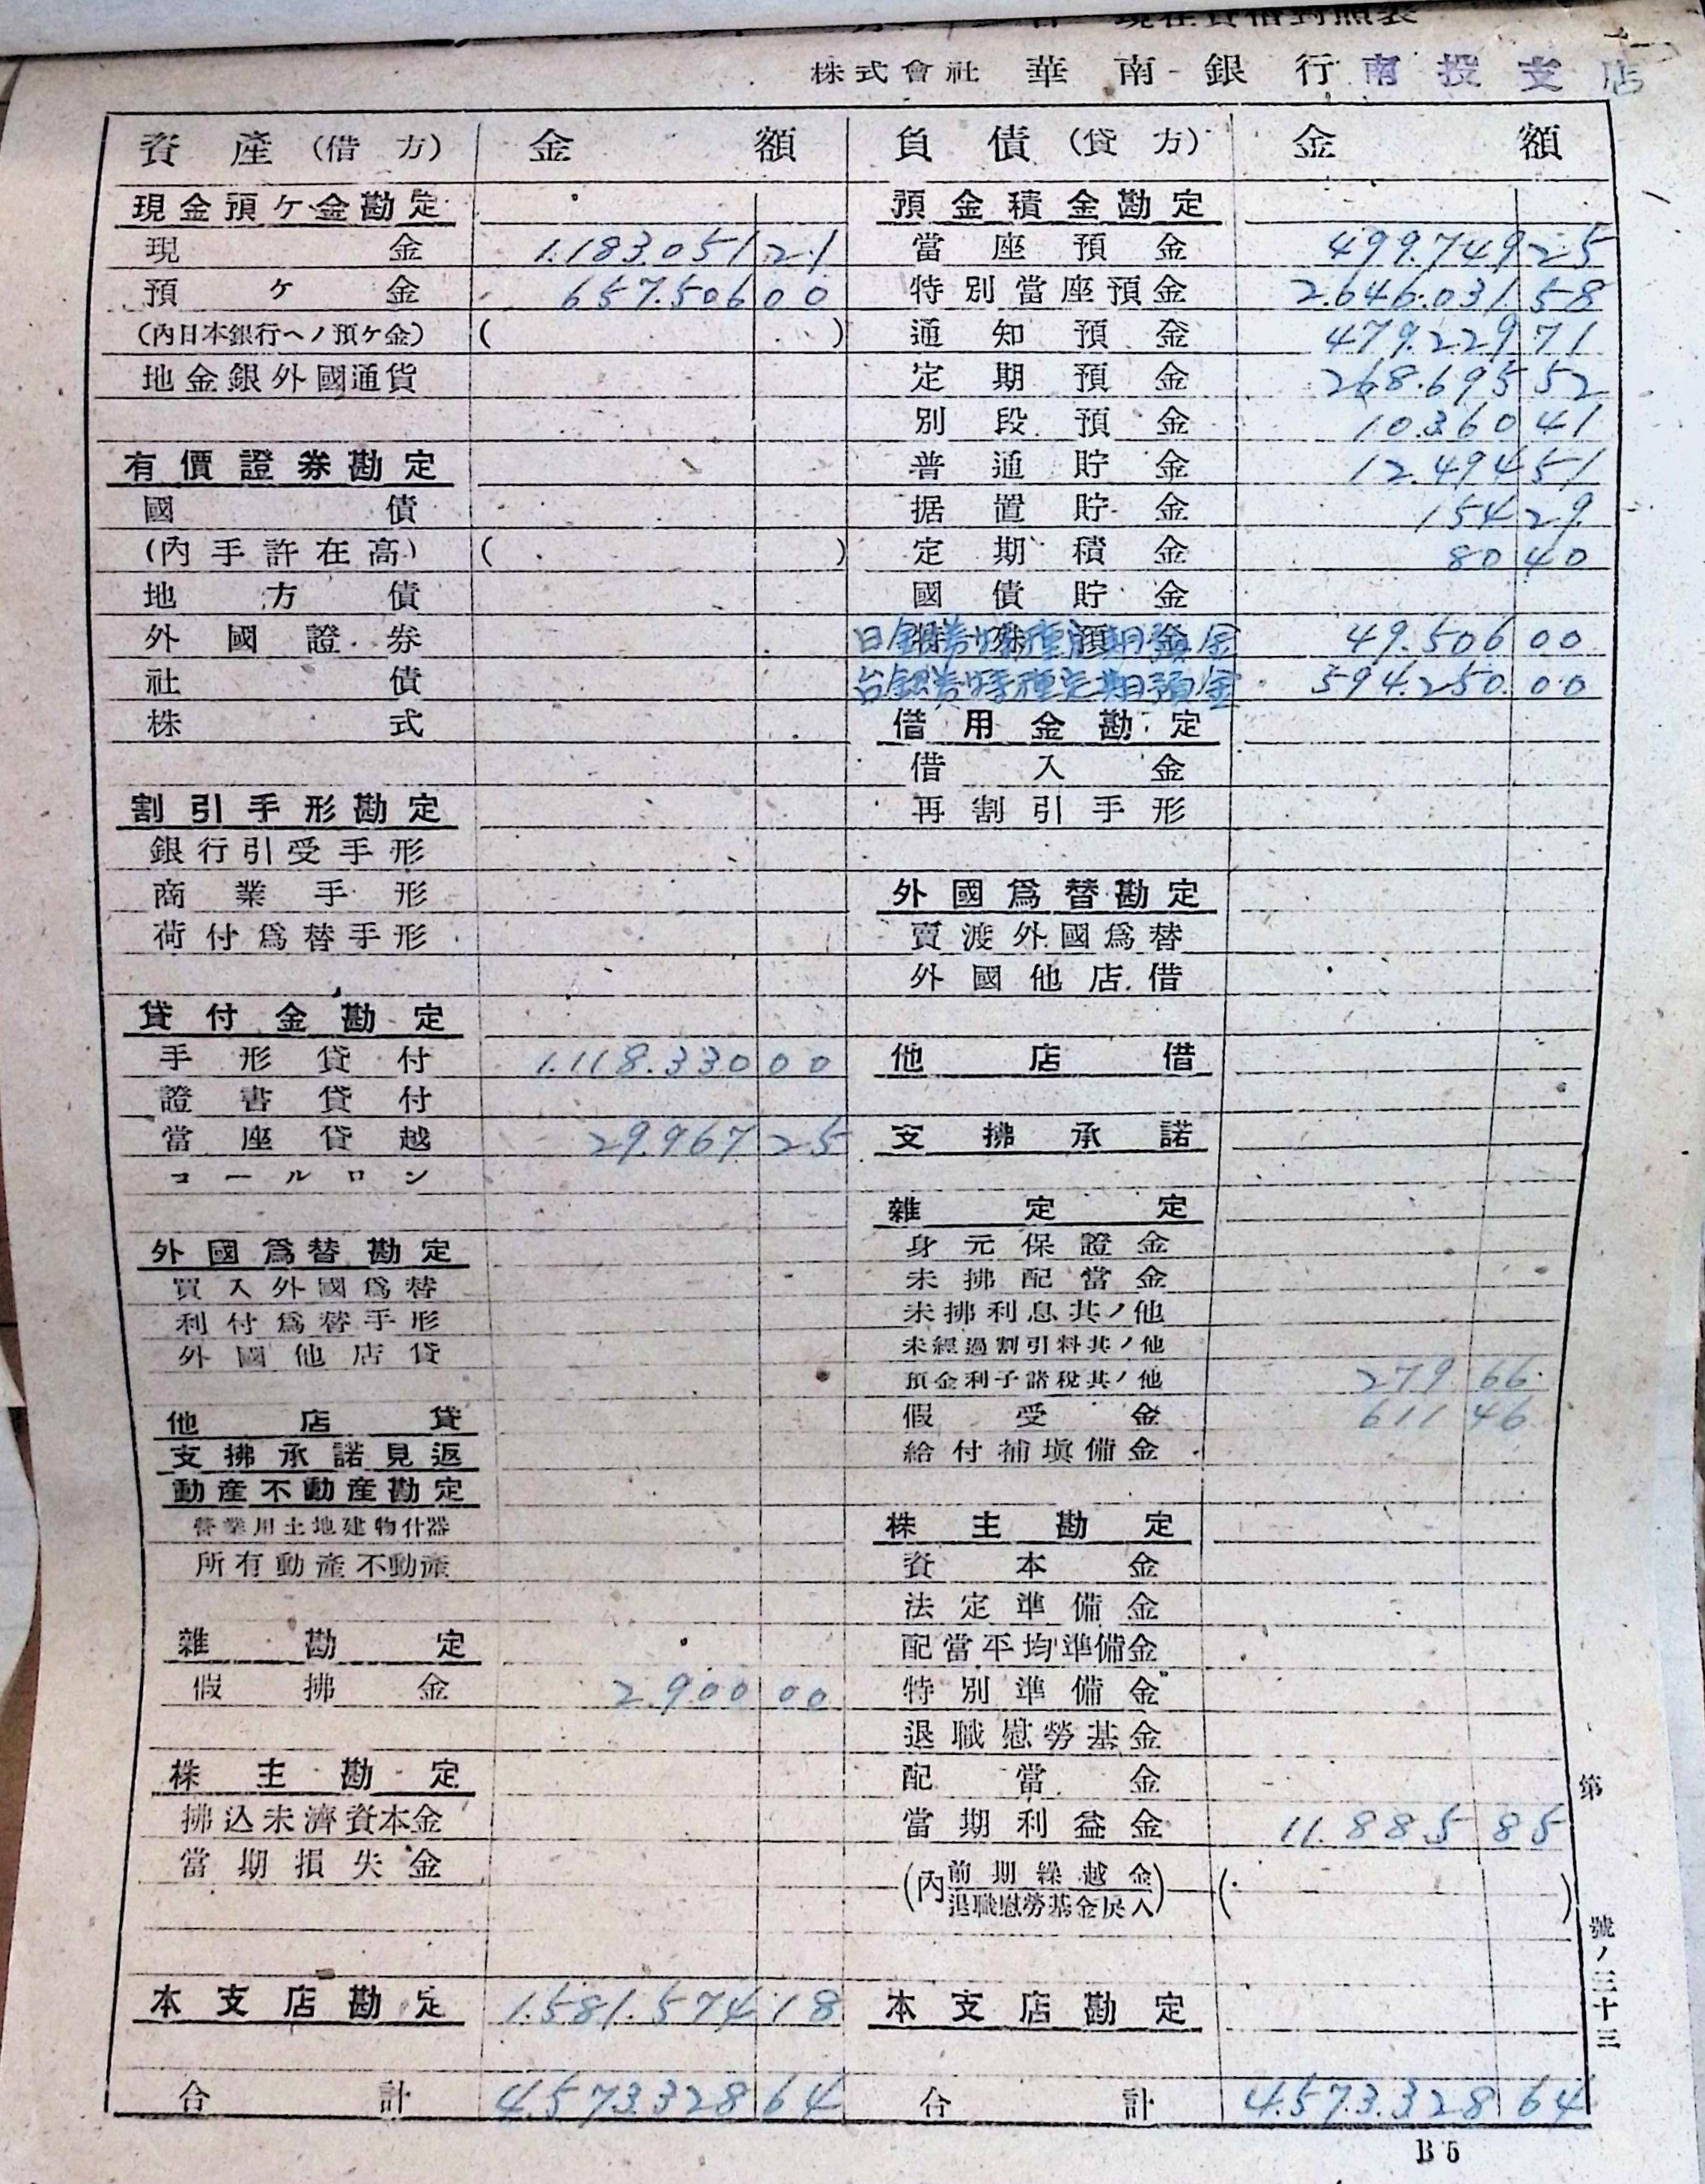 現在貸借對照表
株式會社 華南銀行 南投支店
資產(借方) 金額
現金預ケ金勘定
現金 1.183.051 21
預ケ金 657.506 00
(內日本銀行ヘノ預ケ金) ( )
地金銀外國通貨
有價證券勘定
國債
(內手許在高) ( )
地方債
外國證券
社債
株式
割引手形勘定
銀行引受手形
商業手形
荷付爲替手形
貸付金勘定
手形貸付 1.118.330 00
證書貸付
當座貸越 29.967 25
コールロン
外國爲替勘定
買入外國爲替
利付爲替手形
外國他店貸
他店貸
支拂承諾見返
動產不動產勘定
營業用土地建物什器
所有動產不動產
雜勘定
假拂金 2.900 00
株主勘定
拂込未濟資本金
當期損失金
本支店勘定 1.581.574 18
合計 4.573.328 64
負債(貸方) 金額
預金積金勘定
當座預金 499.749 25
特別當座預金 2.646.031 58
通知預金 479.229 71
定期預金 268.695 52
別段預金 10.360 41
普通貯金 12.494 51
据置貯金 154 29
定期積金 80 40
國債貯金
日銀券特種定期預金 49.506 00
台銀券特種定期預金 594.250 00
借用金勘定
借入金
再割引手形
外國爲替勘定
賣渡外國爲替
外國他店借
他店借
支拂承諾
雜定定
身元保證金
未拂配當金
未拂利息其ノ他
未經過割引料其ノ他
預金利子諸稅其ノ他 279 66
假受金 611 46
給付補塡備金
株主勘定
資本金
法定準備金
配當平均準備金
特別準備金
退職慰勞基金
配當金
當期利益金 11.885 85
(內 前期繰越金 退職慰勞基金戾入) ( )
本支店勘定
合計 4.573.328 64
第 號ノ三十三
B5